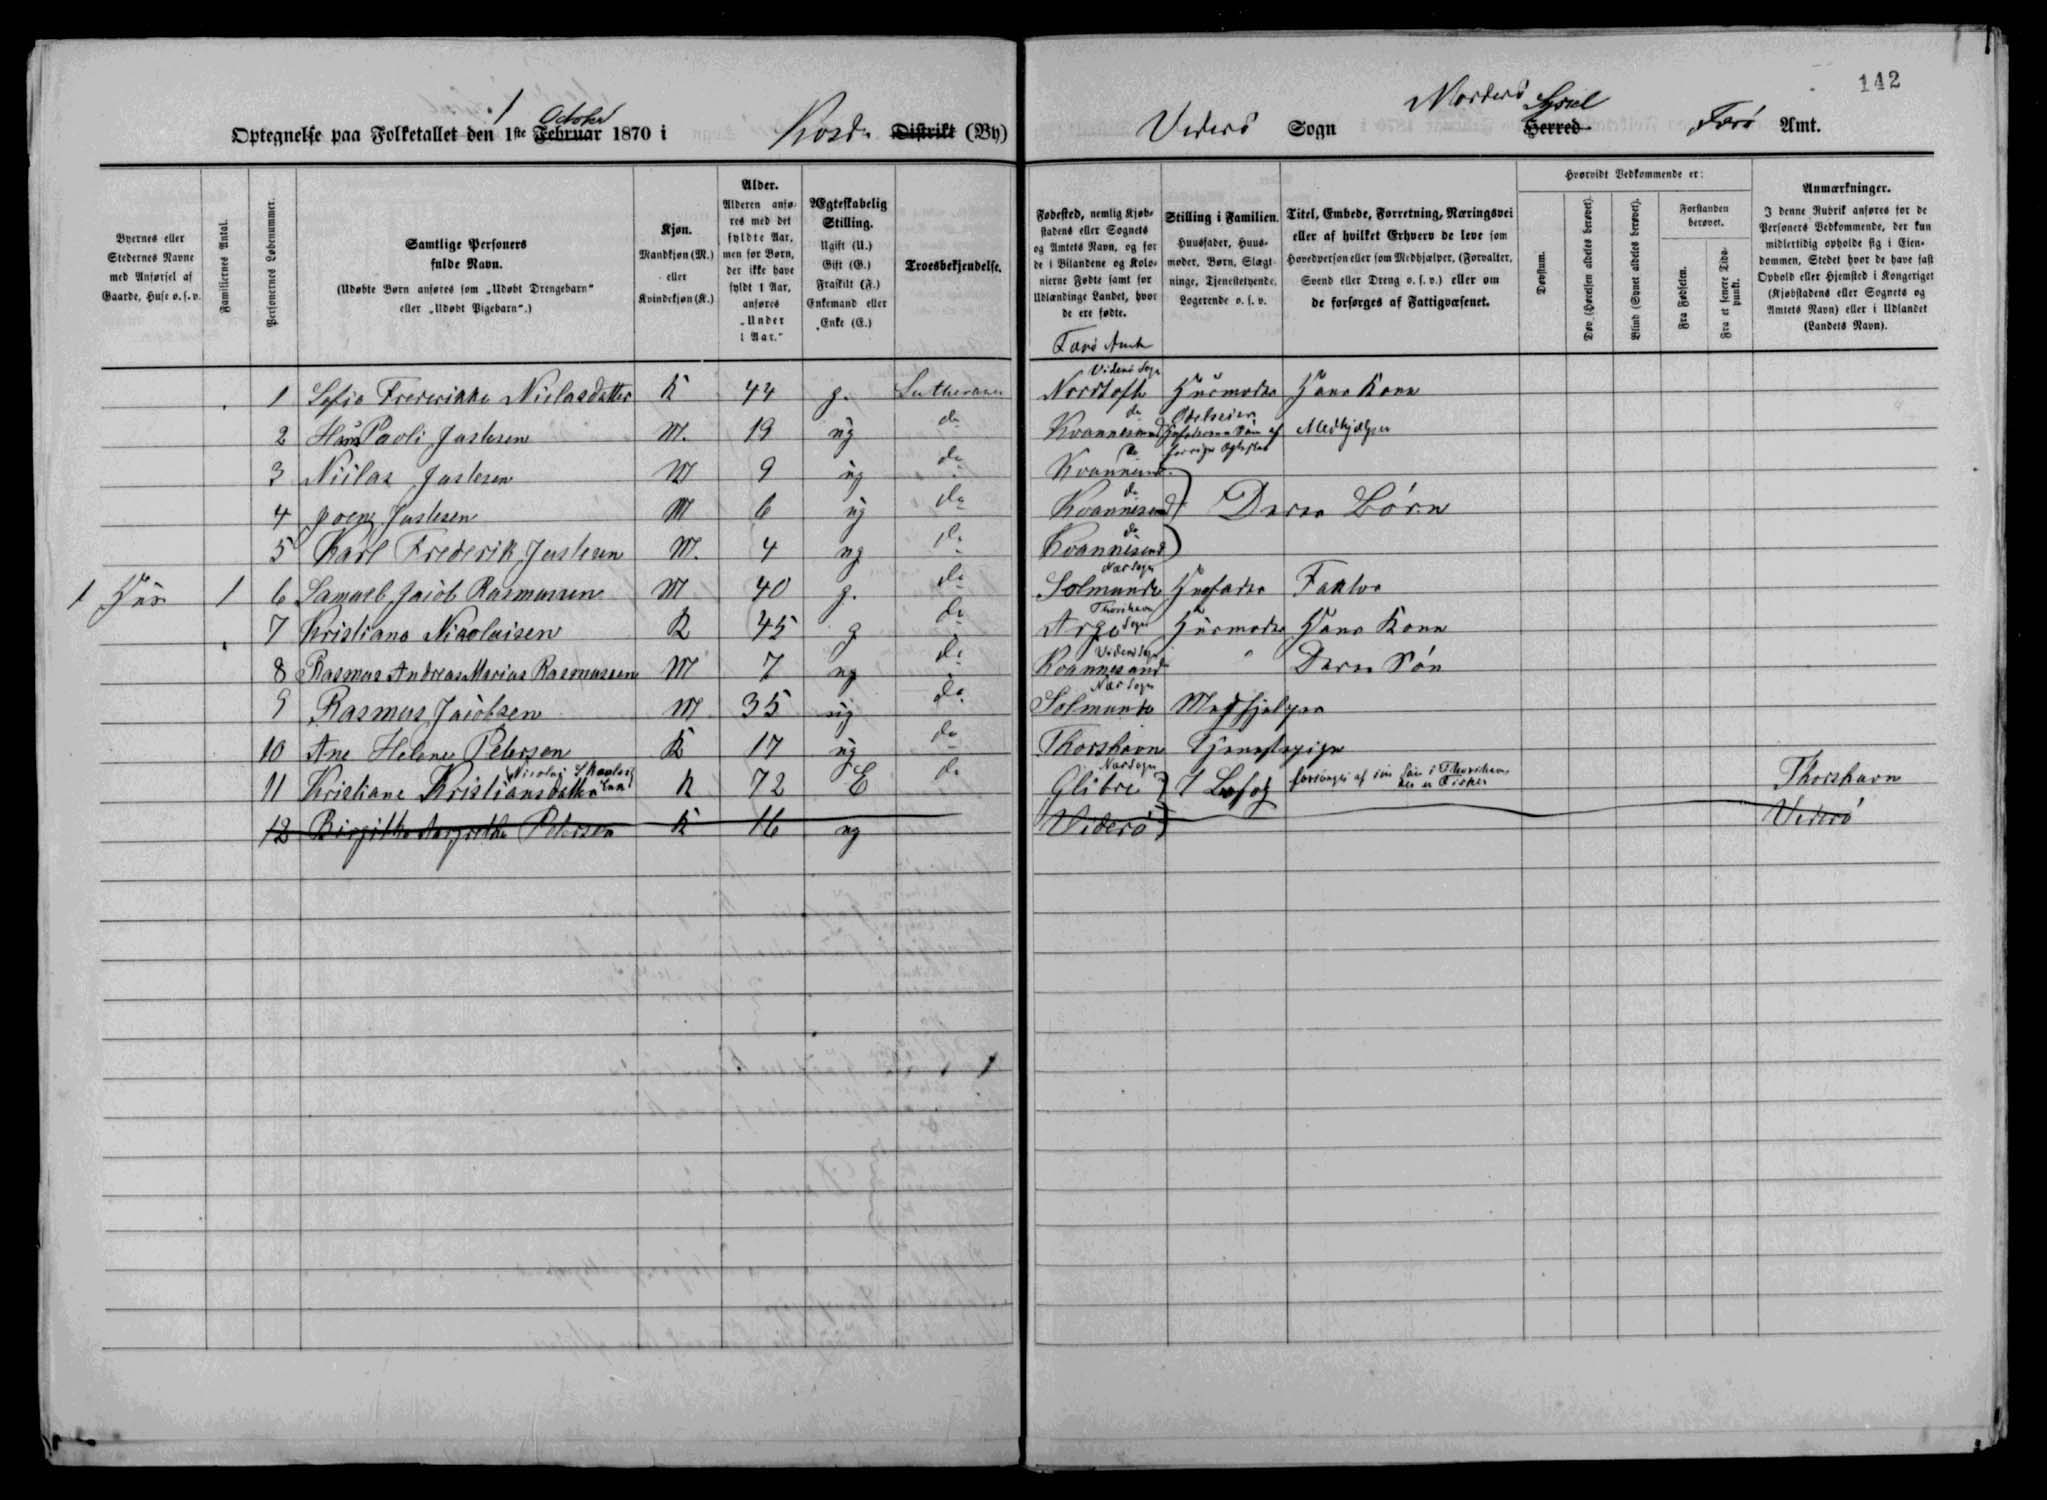 142
Optegnelse paa Folketallet den 1ste Februar October 1870 i (By) Distrikt
Viderö Sogn Norderö Sysel Herred Færö Amt.
Byernes eller Stedernes Navne med Anførsel af Gaarde, Huse o. s. v.
Familiernes Antal.
Personernes Løbenummer.
Samtlige Personers fulde Navn.
(Udøbte Børn anføres som „Udøbt Drengebarn“ eller „Udøbt Pigebarn“.)
Kjøn.
Mandkjøn (M.) eller Kvindekjøn (K.)
Alder.
Alderen anføres med det fyldte Aar, men for Børn, der ikke have fyldt 1 Aar, anføres „Under 1 Aar.“
Ægteskabelig Stilling.
Ugift (U.) Gift (G.) Fraskilt (F.) Enkemand eller Enke (E.)
Troesbekjendelse.
Fødested, nemlig Kjøbstadens eller Sognets og Amtets Navn, og for de i Bilandene og Kolonierne Fødte samt for Udlændinge Landet, hvor de ere fødte.
Færö Amt
Stilling i Familien.
Huusfader, Huusmoder, Børn, Slægtninge, Tjenestetyende, Logerende o. s. v.
Titel, Embede, Forretning, Næringsvei eller af hvilket Erhverv de leve som Hovedperson eller som Medhjælper, (Forvalter, Svend eller Dreng o. s. v.) eller om de forsørges af Fattigvæsenet.
Hvorvidt Vedkommende er:
Døvstum.
Døv (Hørelsen aldeles berøvet).
Blind (Synet aldeles berøvet).
Forstanden berøvet.
Fra Fødselen.
Fra et senere Tidspunkt.
Anmærkninger.
I denne Rubrik anføres for de Personers Vedkommende, der kun midlertidig opholde sig i Eiendommen, Stedet hvor de have fast Ophold eller Hjemsted i Kongeriget (Kjøbstadens eller Sognets og Amtets Navn) eller i Udlandet (Landets Navn).
1 Sofie Frederikke Niclasdatter K 44 g. Lutheraner Viderö Sogn Nordtofte Husmoder Hans Kone
2 Hans Pauli Justesen M. 19 ug do do Kvannesund Søn af forrige Ægteskab Medhjelper
3 Niclas Justesen M 9 ug do do Kvannesund
4 Joen Justesen M 6 ug do do Kvannesund Deres Børn
5 Karl Frederik Justesen M. 4 ug do do Kvannesund
1 Hus 1 6 Samuel Jacob Rasmussen M 40 g. do Næs Sogn Solmunde Husfader Faktor
7 Kristiane Nicolaisen K 45 g do Thorshavn Sogn Arge Husmoder Hans Kone
8 Rasmus Andreas Marius Rasmussen M 7 ug do Viderö Sogn Kvannesund " Deres Søn
9 Rasmus Jacobsen M 35 ug do Næs Sogn Solmunde Medhjelper
10 Ane Helene Petersen K 17 ug do Thorshavn Tjenestepige
11 Kristiane Kristiansdatter Nicolai K 72 E do Næs Sogn Glibre I Besøg forsørges af sin Søn i Thorshavn Thorshavn
12 Birgitha Margretha Petersen K 16 ug Viderö Viderö